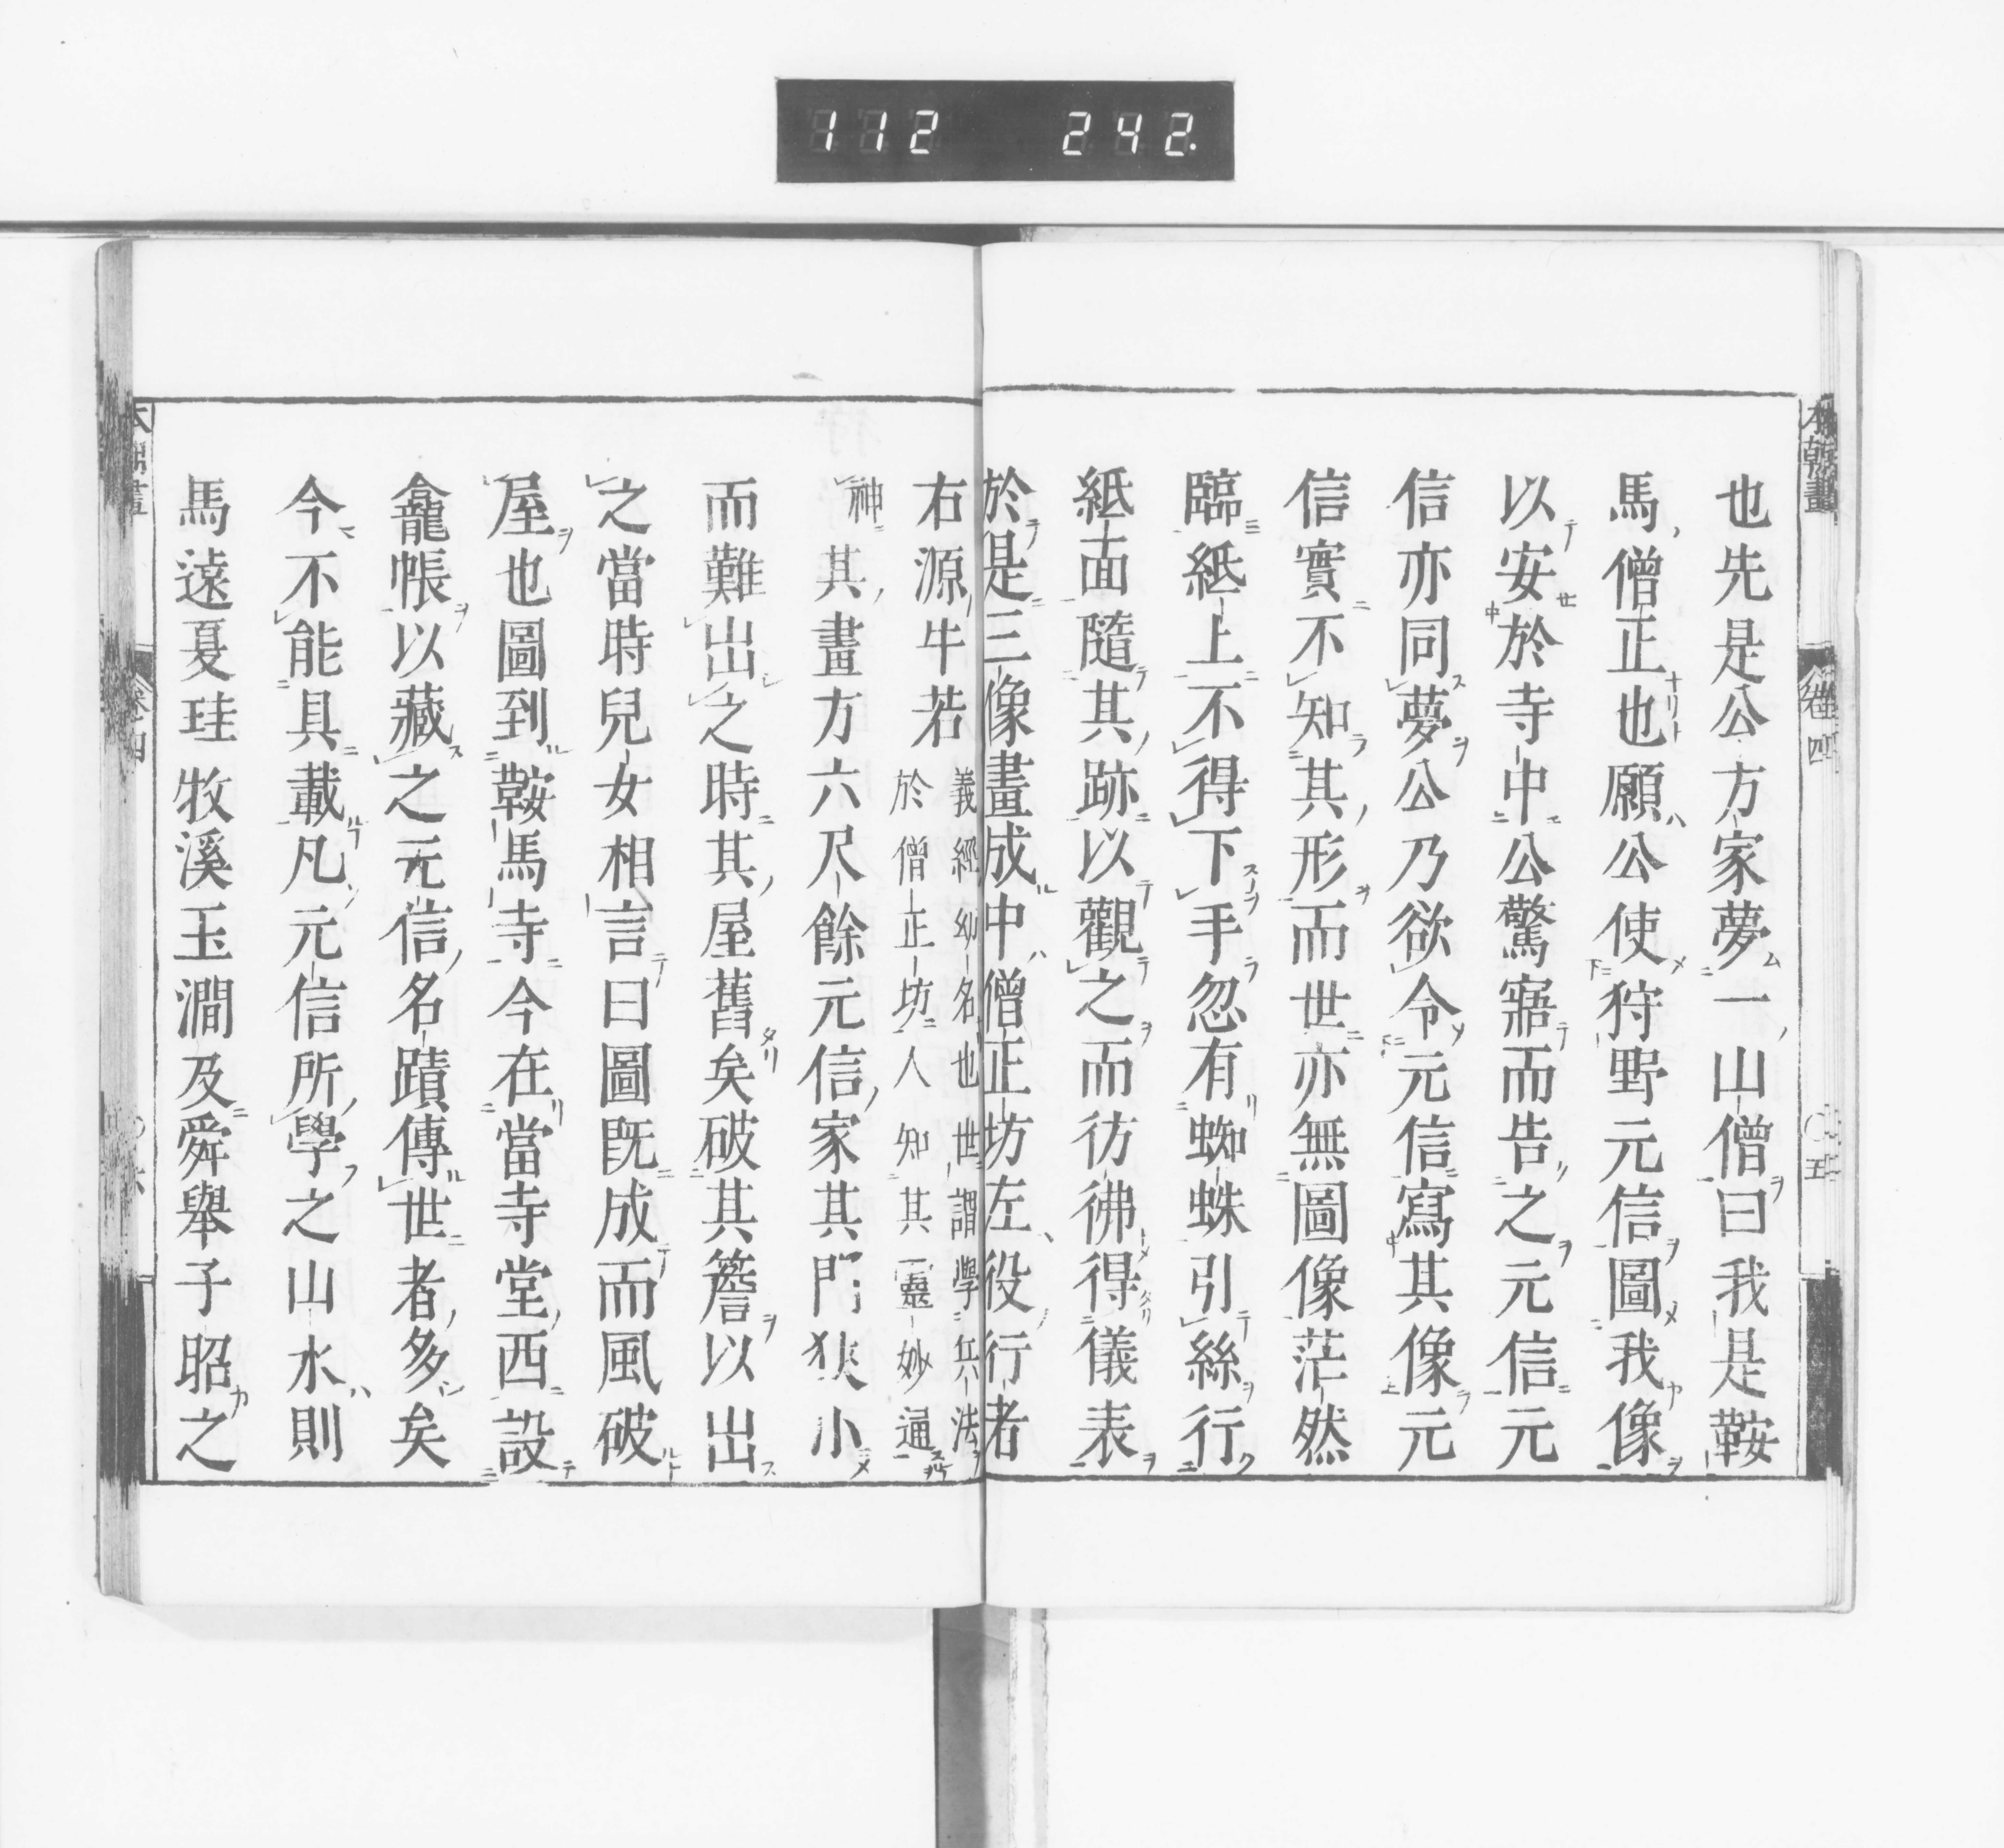 112 242.
本朝畫 卷四 〇五
也先是公方家夢一山僧曰我是鞍
馬僧正也願公使狩野元信圖我像
以安於寺中公驚寤而告之元信元
信亦同夢公乃欲令元信寫其像元
信實不知其形而世亦無圖像茫然
臨紙上不得下手忽有蜘蛛引絲行
紙面隨其跡以觀之而彷彿得儀表
於是三像畫成中僧正坊左役行者
右源牛若
義經幼名也世謂學兵法
於僧正坊人知其靈妙通
神其畫方六尺餘元信家其門狹小
而難出之時其屋舊矣破其簷以出
之當時兒女相言曰圖既成而風破
屋也圖到鞍馬寺今在當寺堂西設
龕帳以藏之元信名蹟傳世者多矣
今不能具載凡元信所學之山水則
馬遠夏珪牧溪玉澗及舜舉子昭之